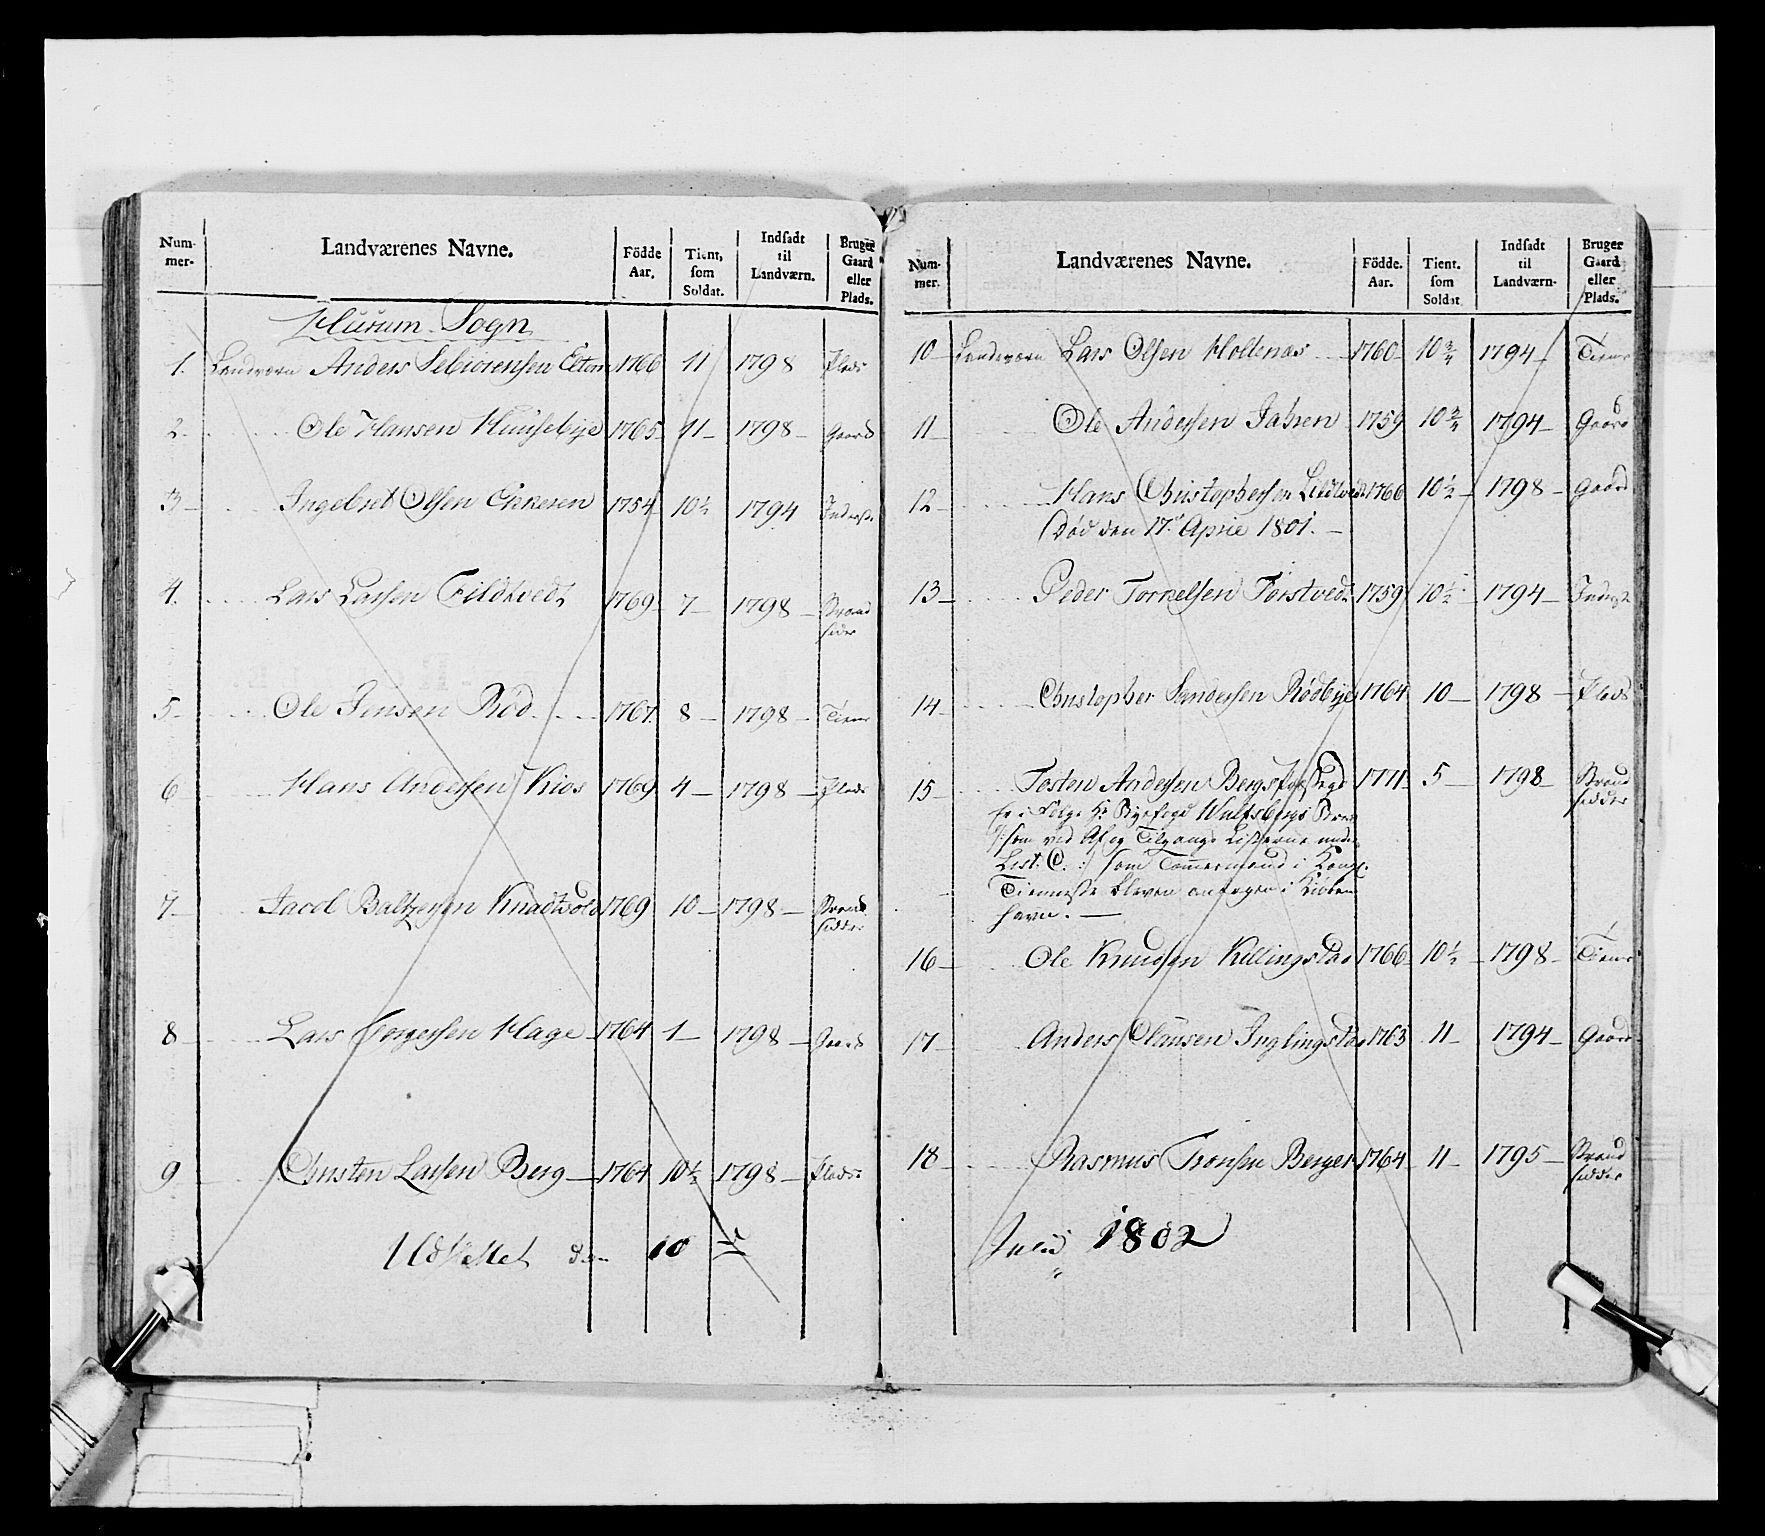 Num-mer. Landværenes Navne. Födde Aar. Tient, som Soldat. Indsadt til Landværn. Bruger Gaard eller Plads.
Hurum Sogn
1. Landværn Anders Sebiörensen 1766 11 1798 Plads
2. Ole Hansen Huusebÿe 1765 11 1798 Gaard
3 Ingebret Olsen Eckeren 1754 10½ 1794 Inderste
4. Lars Larsen Tildtvedt 1769 7 1798 Strand
sider
5 Ole Jensen Röd 1767 8 1798 Tiener
6 Hans Andersen Kios 1769 4 1798 Plads
7 Jacob Baltzersen Knadtvold 1769 10 1798 Strand
sidder
8 Lars Hage 1764 1 1798 Gaard
9 Christen Larsen Berg 1764 10½ 1798 Plads
Udsletted den 10
Num-mer. Landværenes Navne. Födde. Aar. Tient. som Soldat Indsadt til Landværn- Bruger Gaard eller Plads.
10 Landværn Lars Olsen Holtenas 1760 10¾ 1794 Tiener
11 Ole Andersen Jahren 1759 10¾ 1794 Gaard
12 Hans Christophersen 1766 10½ 1798 Gaard
Död den 17 April 1801.
13 Peder Tornelsen Torstvedt 1759 10½ 1794 Inderste
14 Christopher Sandersen Rödbÿe 1764 10 1798 Plads
15 Tosten Andersen 1771 5 1798 Strand
sidder
er i Fölge Hr Wulfsbergs
som ved Af og Tilgangs Listerne under
List. C. som Tömmermand i Kongl.
Tienneste bleven antagen i Kiöben
havn.
16 Ole Knudsen Killingstad 1766 10½ 1798 Tiener
17 Anders Clausen Inglingstad 1763 11 1794 Gaard
18 Rasmus Tronsen Berger 1764 11 1795 Strand
sidder
Julii 1802